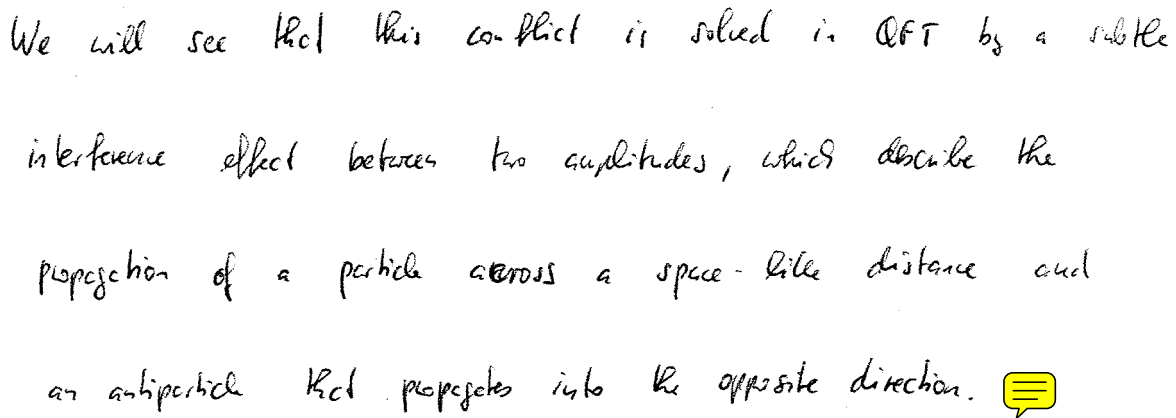 We will see that this conflict is solved in QFT by a subtle
interference effect between two amplitudes, which describe the
propagation of a particle across a space-like distance and
an antiparticle that propagates into the opposite direction.